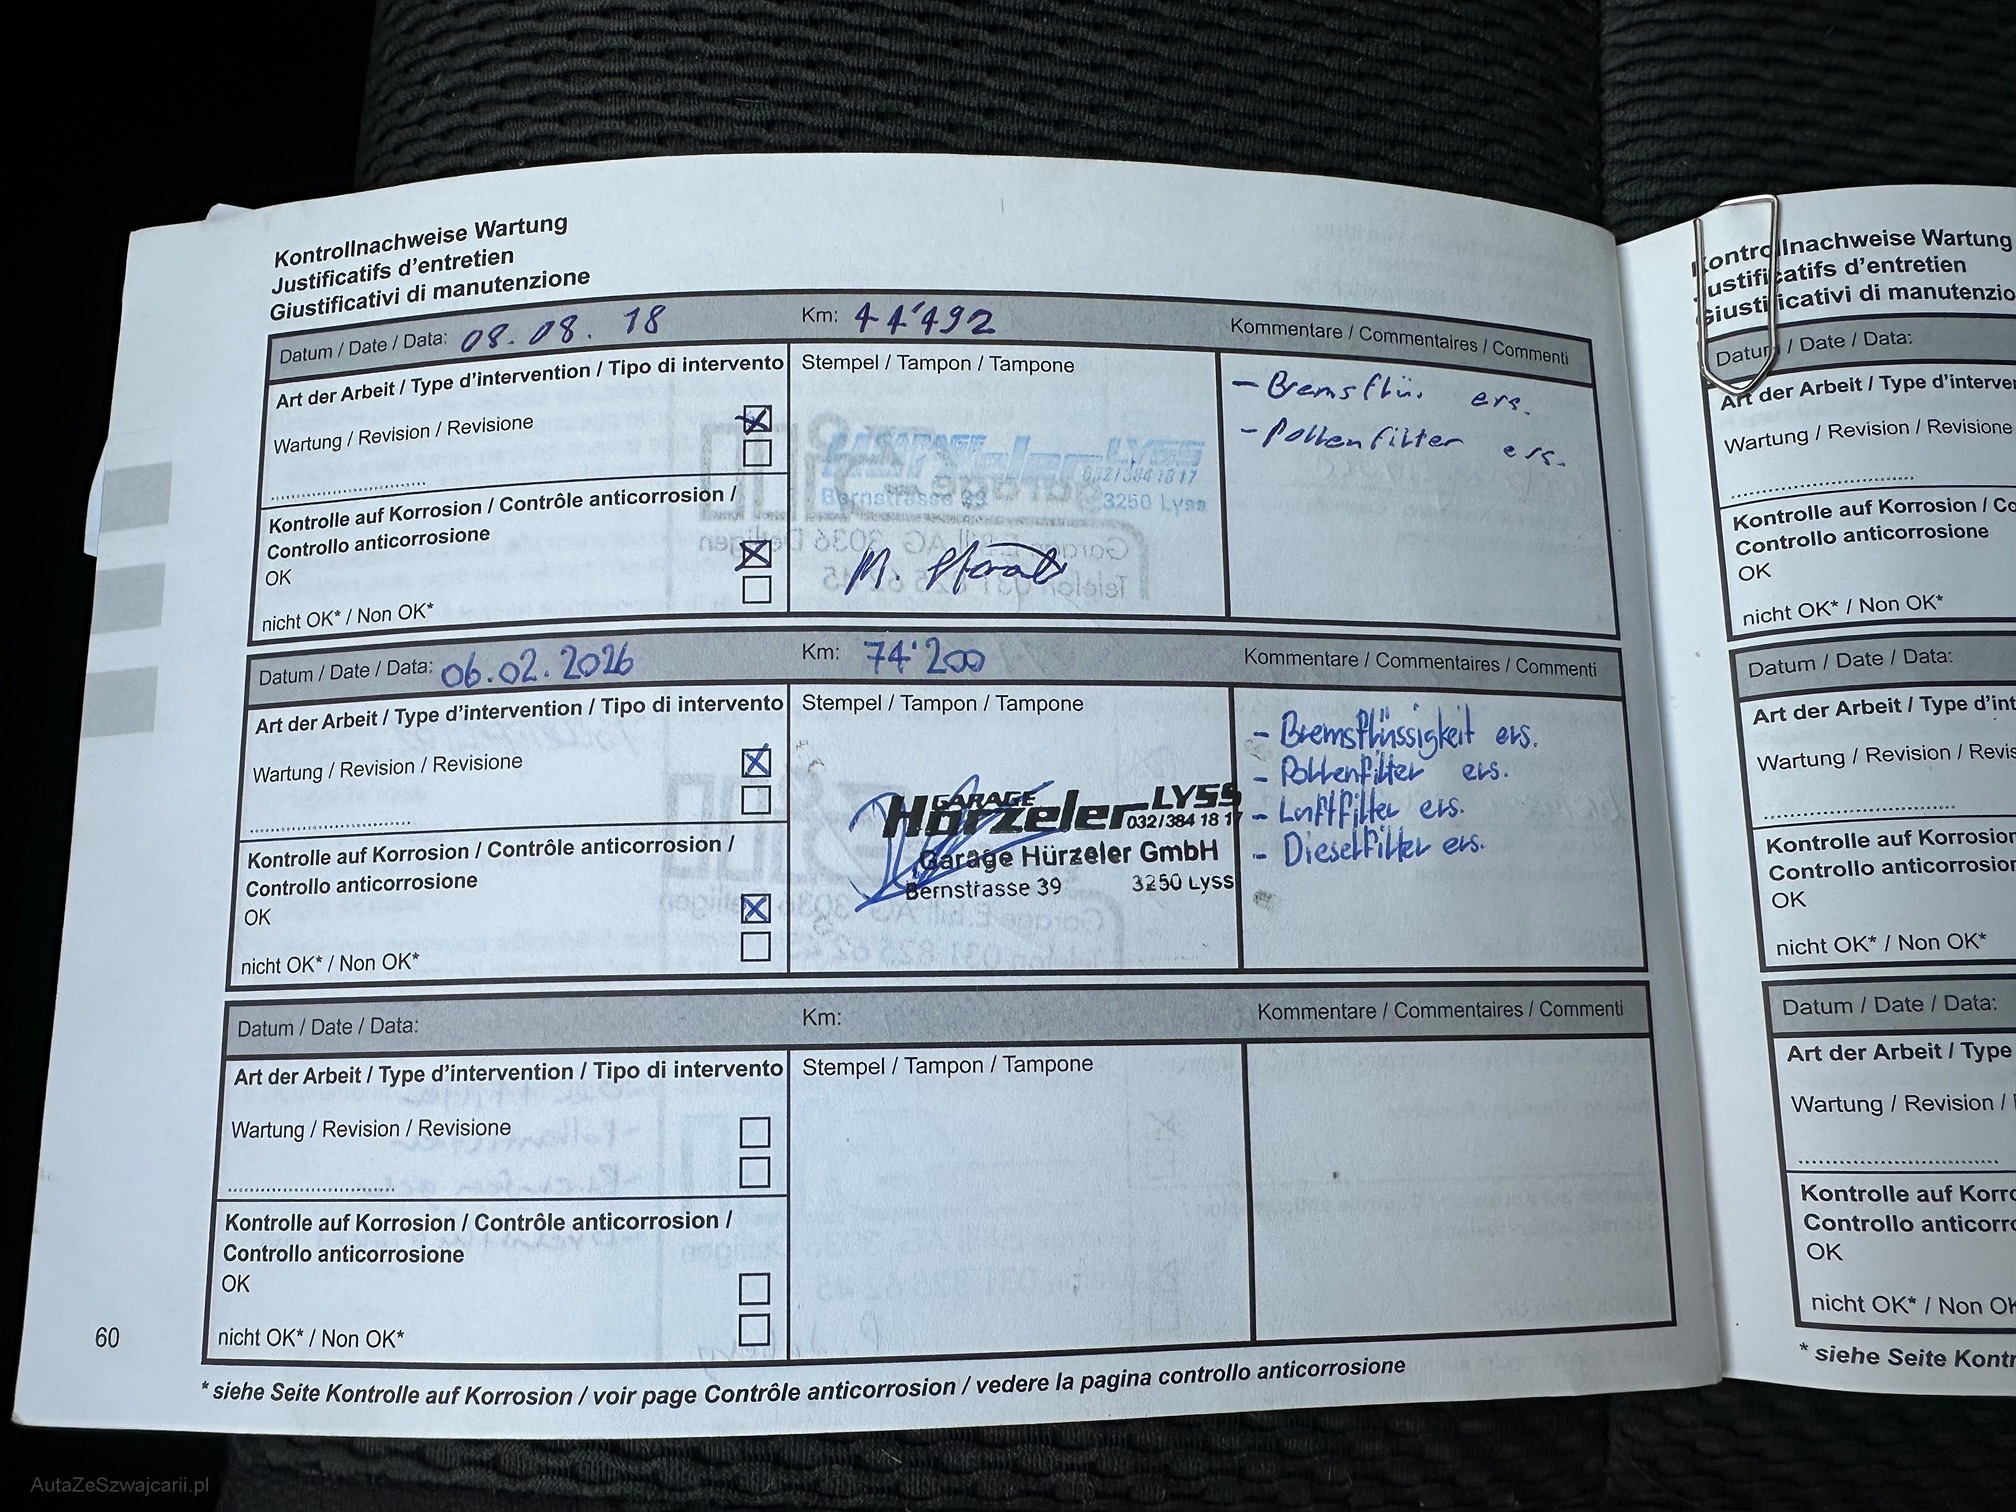 Kontrollnachweise Wartung
Justificatifs d'entretien
Giustificativi di manutenzione
Datum / Date / Data: 08.08.18 Km: 44'492 Kommentare / Commentaires / Commenti
Art der Arbeit / Type d'intervention / Tipo di intervento Stempel / Tampon / Tampone
- Bremsflüs. ers.
Wartung / Revision / Revisione
- Pollenfilter ers.
GARAGE LYSS
032/384 18 17
Bernstrasse 39 3250 Lyss
Kontrolle auf Korrosion / Contrôle anticorrosion /
Controllo anticorrosione
OK
nicht OK* / Non OK*
Datum / Date / Data: 06.02.2026 Km: 74'200 Kommentare / Commentaires / Commenti
Art der Arbeit / Type d'intervention / Tipo di intervento Stempel / Tampon / Tampone
- Bremsflüssigkeit ers.
Wartung / Revision / Revisione
- Pollenfilter ers.
- Luftfilter ers.
- Dieselfilter ers.
GARAGE
Hürzeler LYSS
032/384 18 17
Garage Hürzeler GmbH
Bernstrasse 39 3250 Lyss
Kontrolle auf Korrosion / Contrôle anticorrosion /
Controllo anticorrosione
OK
nicht OK* / Non OK*
Datum / Date / Data: Km: Kommentare / Commentaires / Commenti
Art der Arbeit / Type d'intervention / Tipo di intervento Stempel / Tampon / Tampone
Wartung / Revision / Revisione
Kontrolle auf Korrosion / Contrôle anticorrosion /
Controllo anticorrosione
OK
nicht OK* / Non OK*
60
* siehe Seite Kontrolle auf Korrosion / voir page Contrôle anticorrosion / vedere la pagina controllo anticorrosione
Kontrollnachweise Wartung
Justificatifs d'entretien
Giustificativi di manutenzio
Datum / Date / Data:
Art der Arbeit / Type d'interve
Wartung / Revision / Revisione
Kontrolle auf Korrosion / Co
Controllo anticorrosione
OK
nicht OK* / Non OK*
Datum / Date / Data:
Art der Arbeit / Type d'int
Wartung / Revision / Revis
Kontrolle auf Korrosion
Controllo anticorrosion
OK
nicht OK* / Non OK*
Datum / Date / Data:
Art der Arbeit / Type
Wartung / Revision /
Kontrolle auf Korro
Controllo anticorro
OK
nicht OK* / Non OK
* siehe Seite Kont
AutaZeSzwajcarii.pl